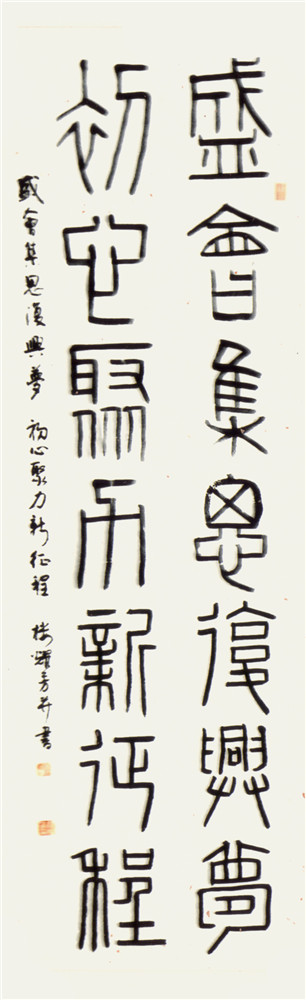 盛會集思復興夢
初心聚力新征程
盛會集思復興夢 初心聚力新征程 楼耀芳并書